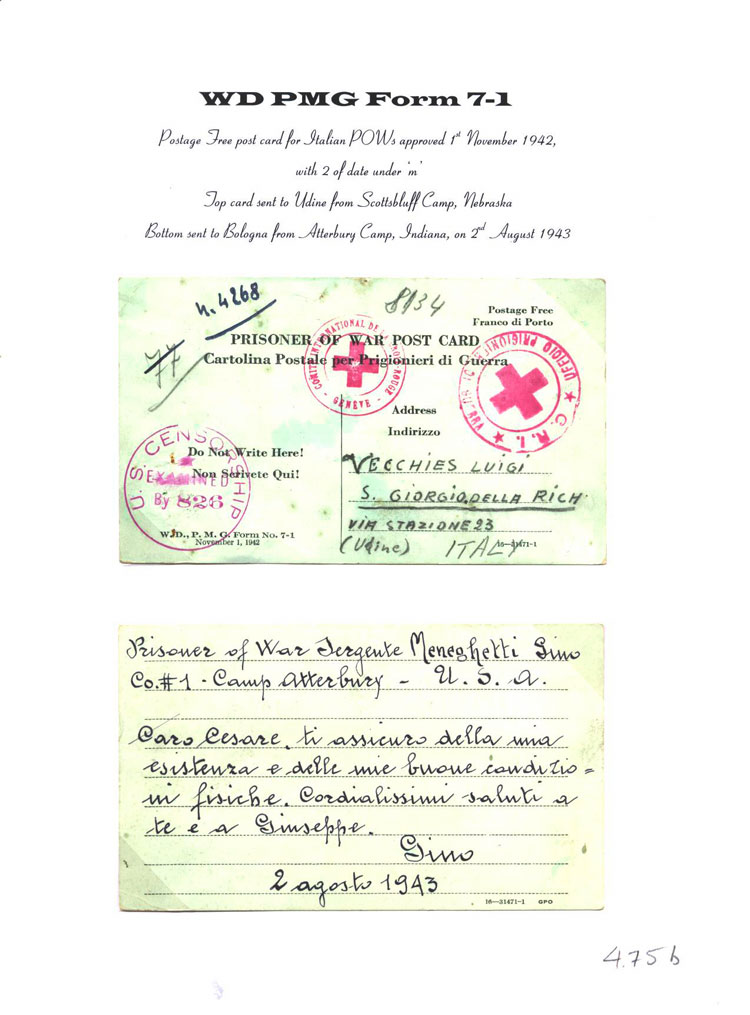 WD PMG Form 7-1
Postage Free post card for Italian POWs approved 1st November 1942,
with 2 of date under 'm'
Top card sent to Udine from Scottsbluff Camp, Nebraska
Bottom sent to Bologna from Atterbury Camp, Indiana, on 2nd August 1943
n. 4268
8134
Postage Free
Franco di Porto
77
PRISONER OF WAR POST CARD
Cartolina Postale per Prigionieri di Guerra
COMITÉ INTERNATIONAL DE LA CROIX-ROUGE
- GENÈVE -
UFFICIO PRIGIONIERI DI GUERRA
★ C.R.I. ★
Address
Indirizzo
U.S. CENSORSHIP
EXAMINED
By 826
Do Not Write Here!
Non Scrivete Qui!
VECCHIES LUIGI
S. GIORGIO. DELLA RICH.
VIA STAZIONE 23
(Udine) ITALY
W. D., P. M. G. Form No. 7-1
November 1, 1942
16—31471-1
Prisoner of War Sergente Meneghetti Gino
Co. #1 - Camp Atterbury - U. S. A.
Caro Cesare, ti assicuro della mia
esistenza e delle mie buone condizio=
ni fisiche. Cordialissimi saluti a
te e a Giuseppe.
Gino
2 agosto 1943
16—31471-1 GPO
4.75 b